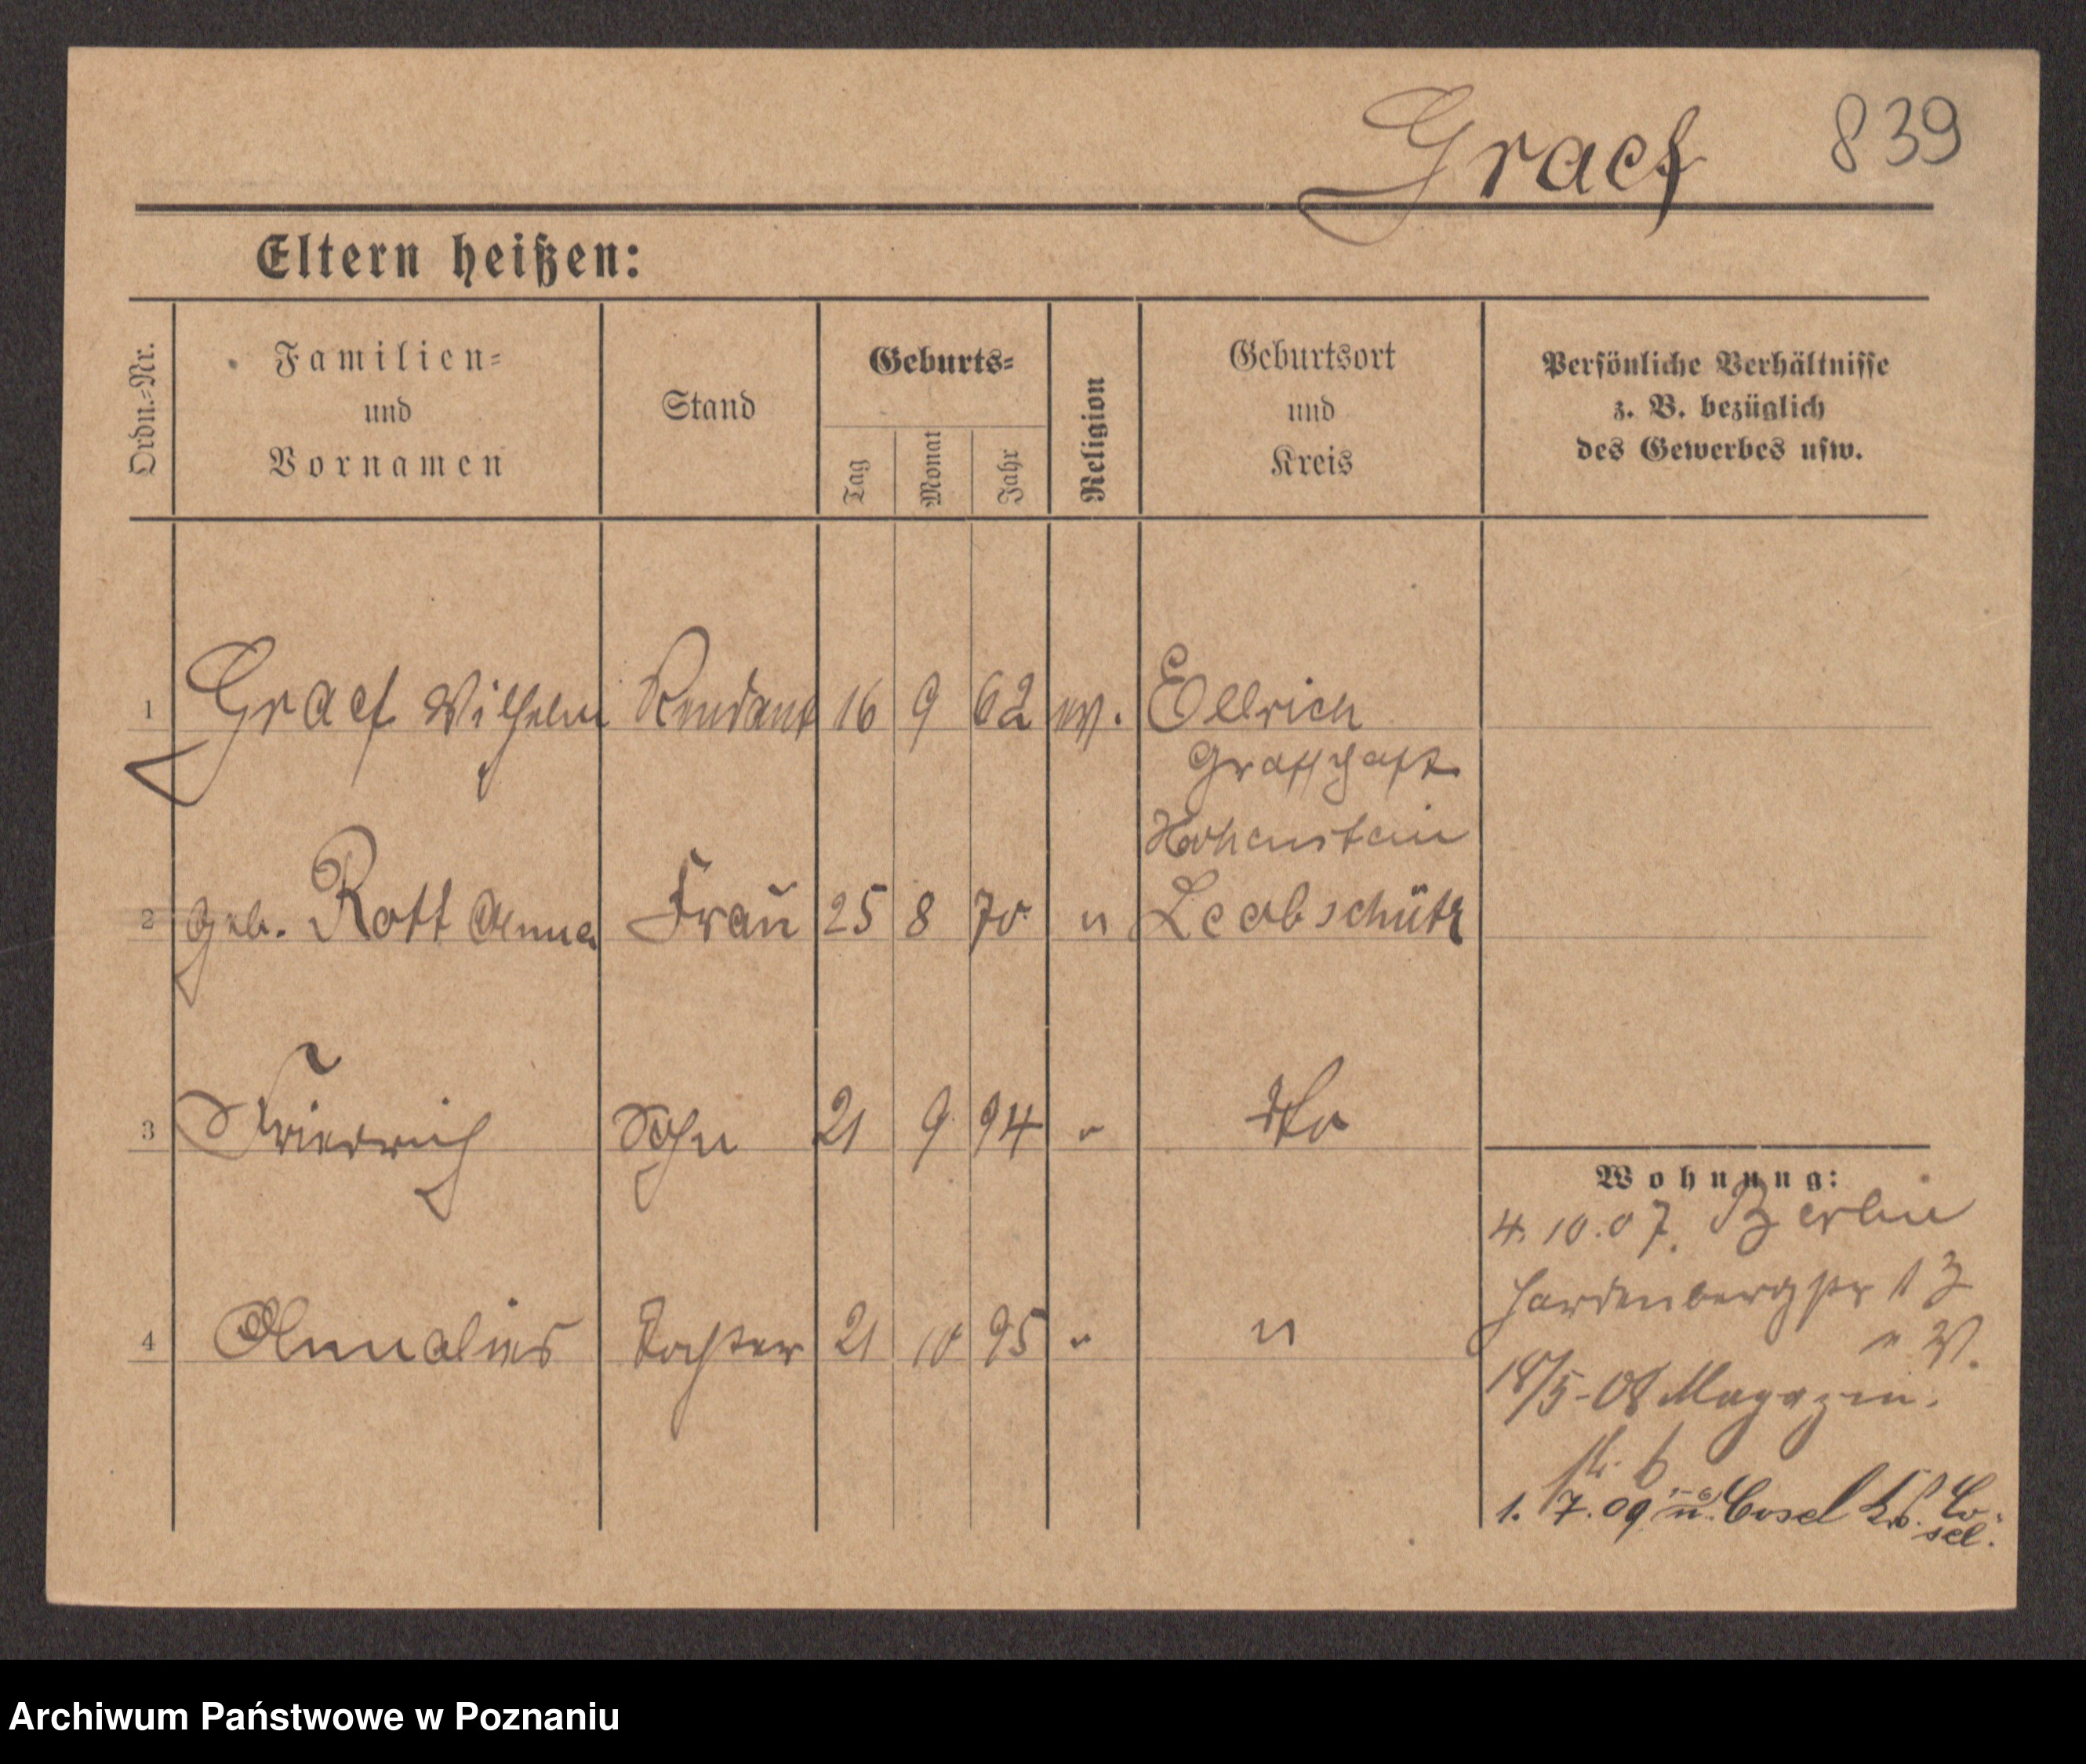 Graef 839
Eltern heißen:
Ordn.-Nr.
Familien-
und
Vornamen
Stand
Geburts-
Tag
Monat
Jahr
Religion
Geburtsort
und
Kreis
Persönliche Verhältnisse
z. B. bezüglich
des Gewerbes usw.
1 Graef Wilhelm Rendant 16 9 62 ev. Ellrich
Grafschaft
Hohenstein
2 geb. Rott Anna Frau 25 8 70 " Leobschütz
3 Friedrich Sohn 21 9 94 "
4 Annalies Tochter 21 10 95 " "
Wohnung:
4. 10. 07. Berlin
Hardenbergstr 13
18/5-08 Magazin.
str. 6
1. 7. 09 n. Cosel Krs. Co-
sel.
Archiwum Państwowe w Poznaniu